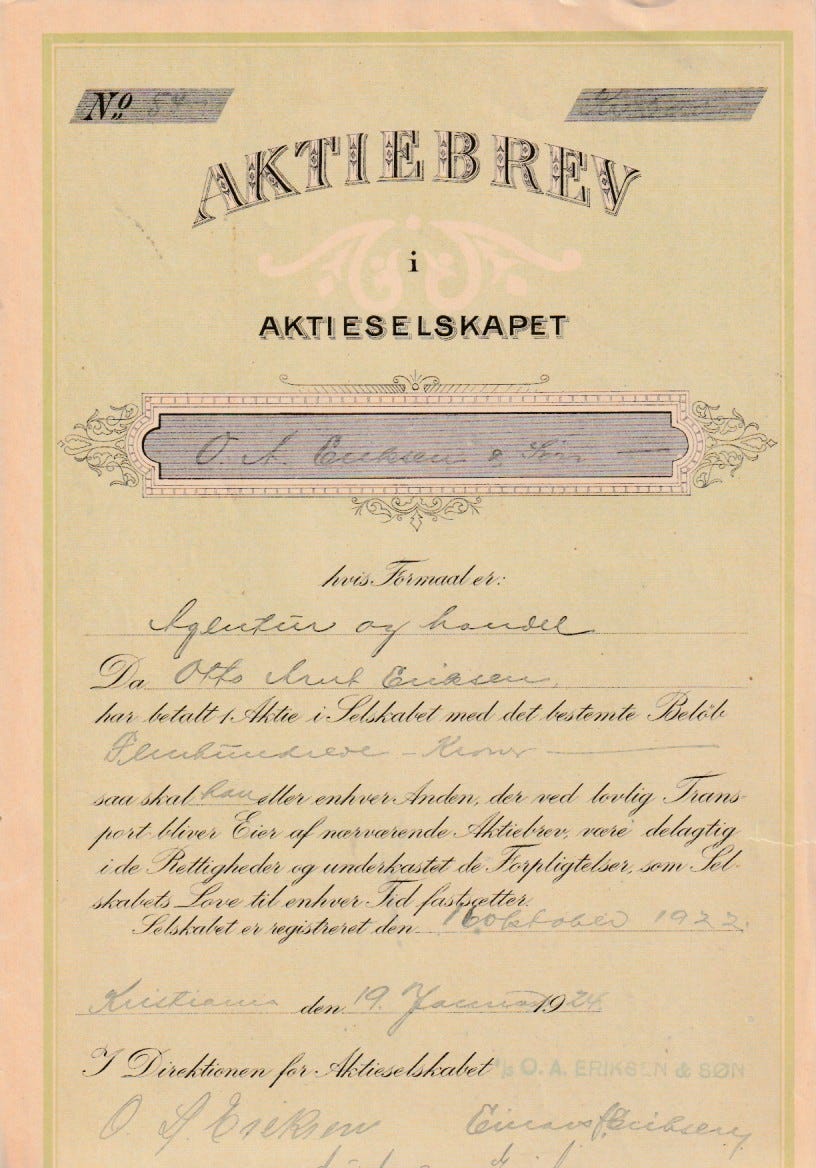 No 54
AKTIEBREV
i
AKTIESELSKAPET
O. A. Eriksen & Søn
hvis Formaal er:
Agentur og handel
Da Otto Arnt Eriksen,
har betalt 1 Aktie i Selskabet med det bestemte Beløb
Femhundrede - Kroner
saa skal han eller enhver Anden, der ved lovlig Trans-
port bliver Eier af nærværende Aktiebrev, være delagtig
i de Rettigheder og underkastet de Forpligtelser, som Sel-
skabets Love til enhver Tid fastsætter.
Selskabet er registreret den 16 oktober 1922.
Kristiania den 19. Januar 1924
I Direktionen for Aktieselskabet A/S O. A. ERIKSEN & SØN
O. A. Eriksen Einar Eriksen